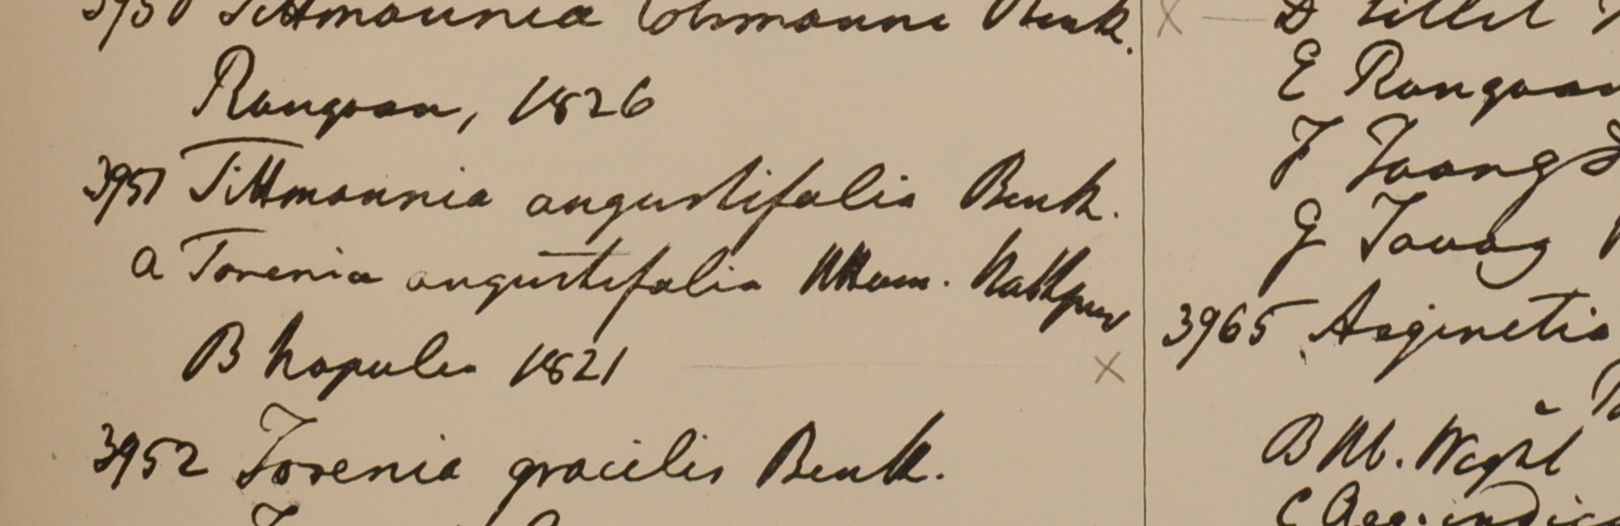 3950 Tittmannia Colsmanni Benth.
Rangoon, 1826
3951 Tittmannia angustifolia Benth.
a Torenia angustifolia Hbham. Nathpur
B Napulea 1821 X
3952 Torenia gracilis Benth.
X — D
E Rangoon
F Taong D
G Tavoy
3965 Aeginetia
B Hb. Wight
C Aeg. indic